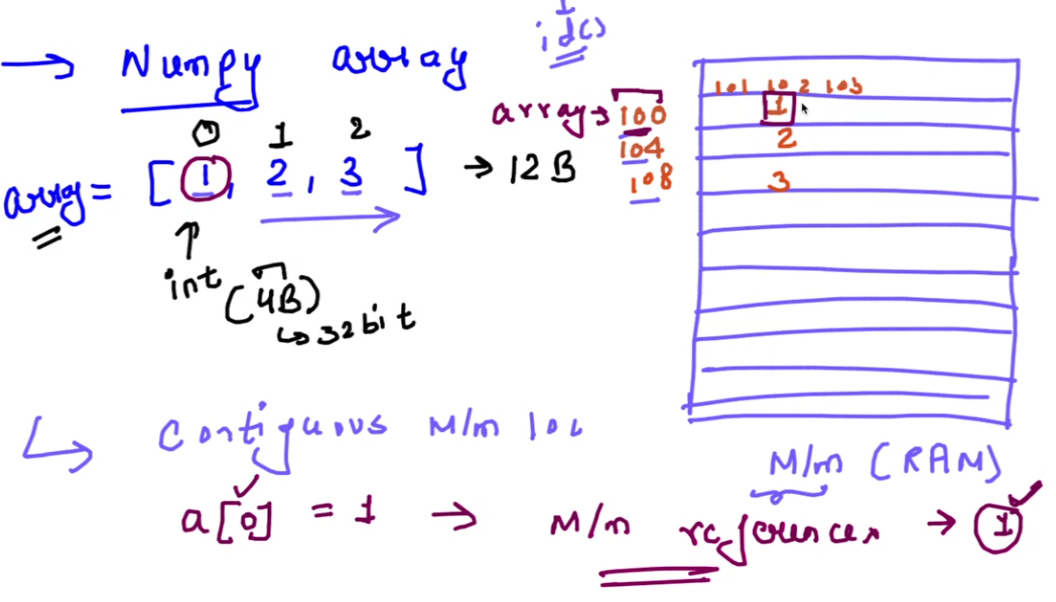 → Numpy array
id()
0 1 2
array = [1, 2, 3] → 12 B
int (4B)
↳ 32 bit
array → 100
104
108
101 102 103
1
2
3
M/m (RAM)
↳ Contiguous M/m loc
a[0] = 1 → M/m references → 1